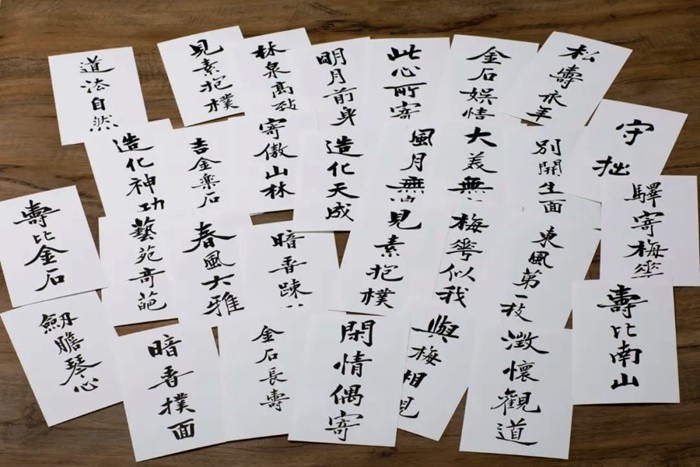 道法自然
見素抱樸
林泉高致
明月前身
此心所寄
金石娱情
松壽永年
造化神功
吉金樂石
寄傲山林
造化天成
風月無
大義無
別開生面
守拙
壽比金石
藝苑奇葩
春風大雅
暗香踈
見素抱樸
梅華似我
東風第一枝
驛寄梅華
劒膽琴心
暗香撲面
金石長壽
閑情偶寄
與梅相見
澂懷觀道
壽比南山